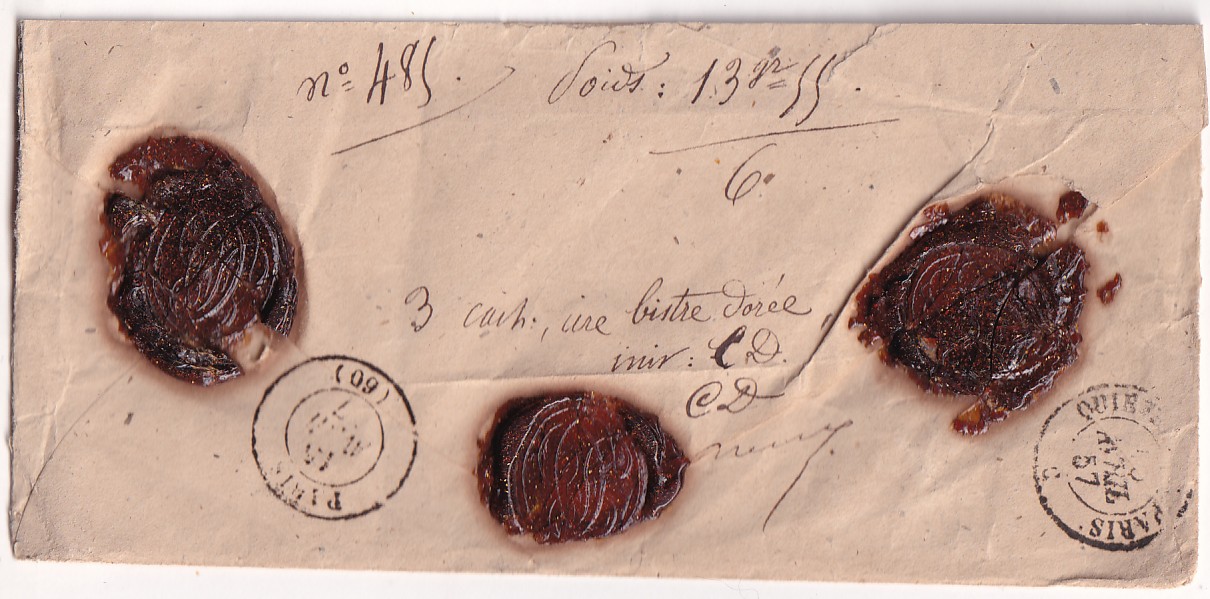 nº 485. Poids: 13 gr 55.
6.
3 cach:, cire bistre dorée
inir: CD.
CD
PARIS (60)
PARIS
57